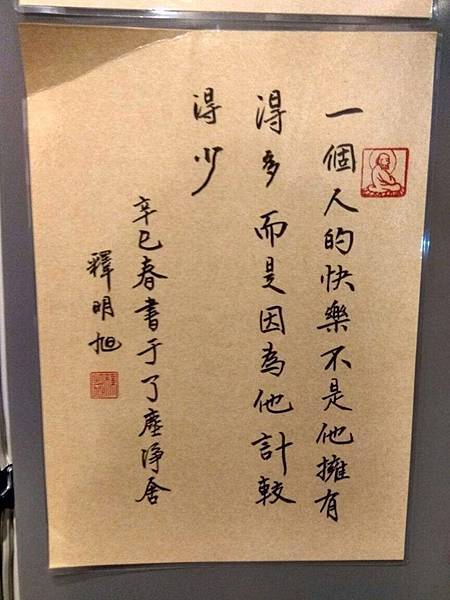 一個人的快樂不是他擁有
得多而是因為他計較
得少
辛巳春書于了塵淨居
釋明旭